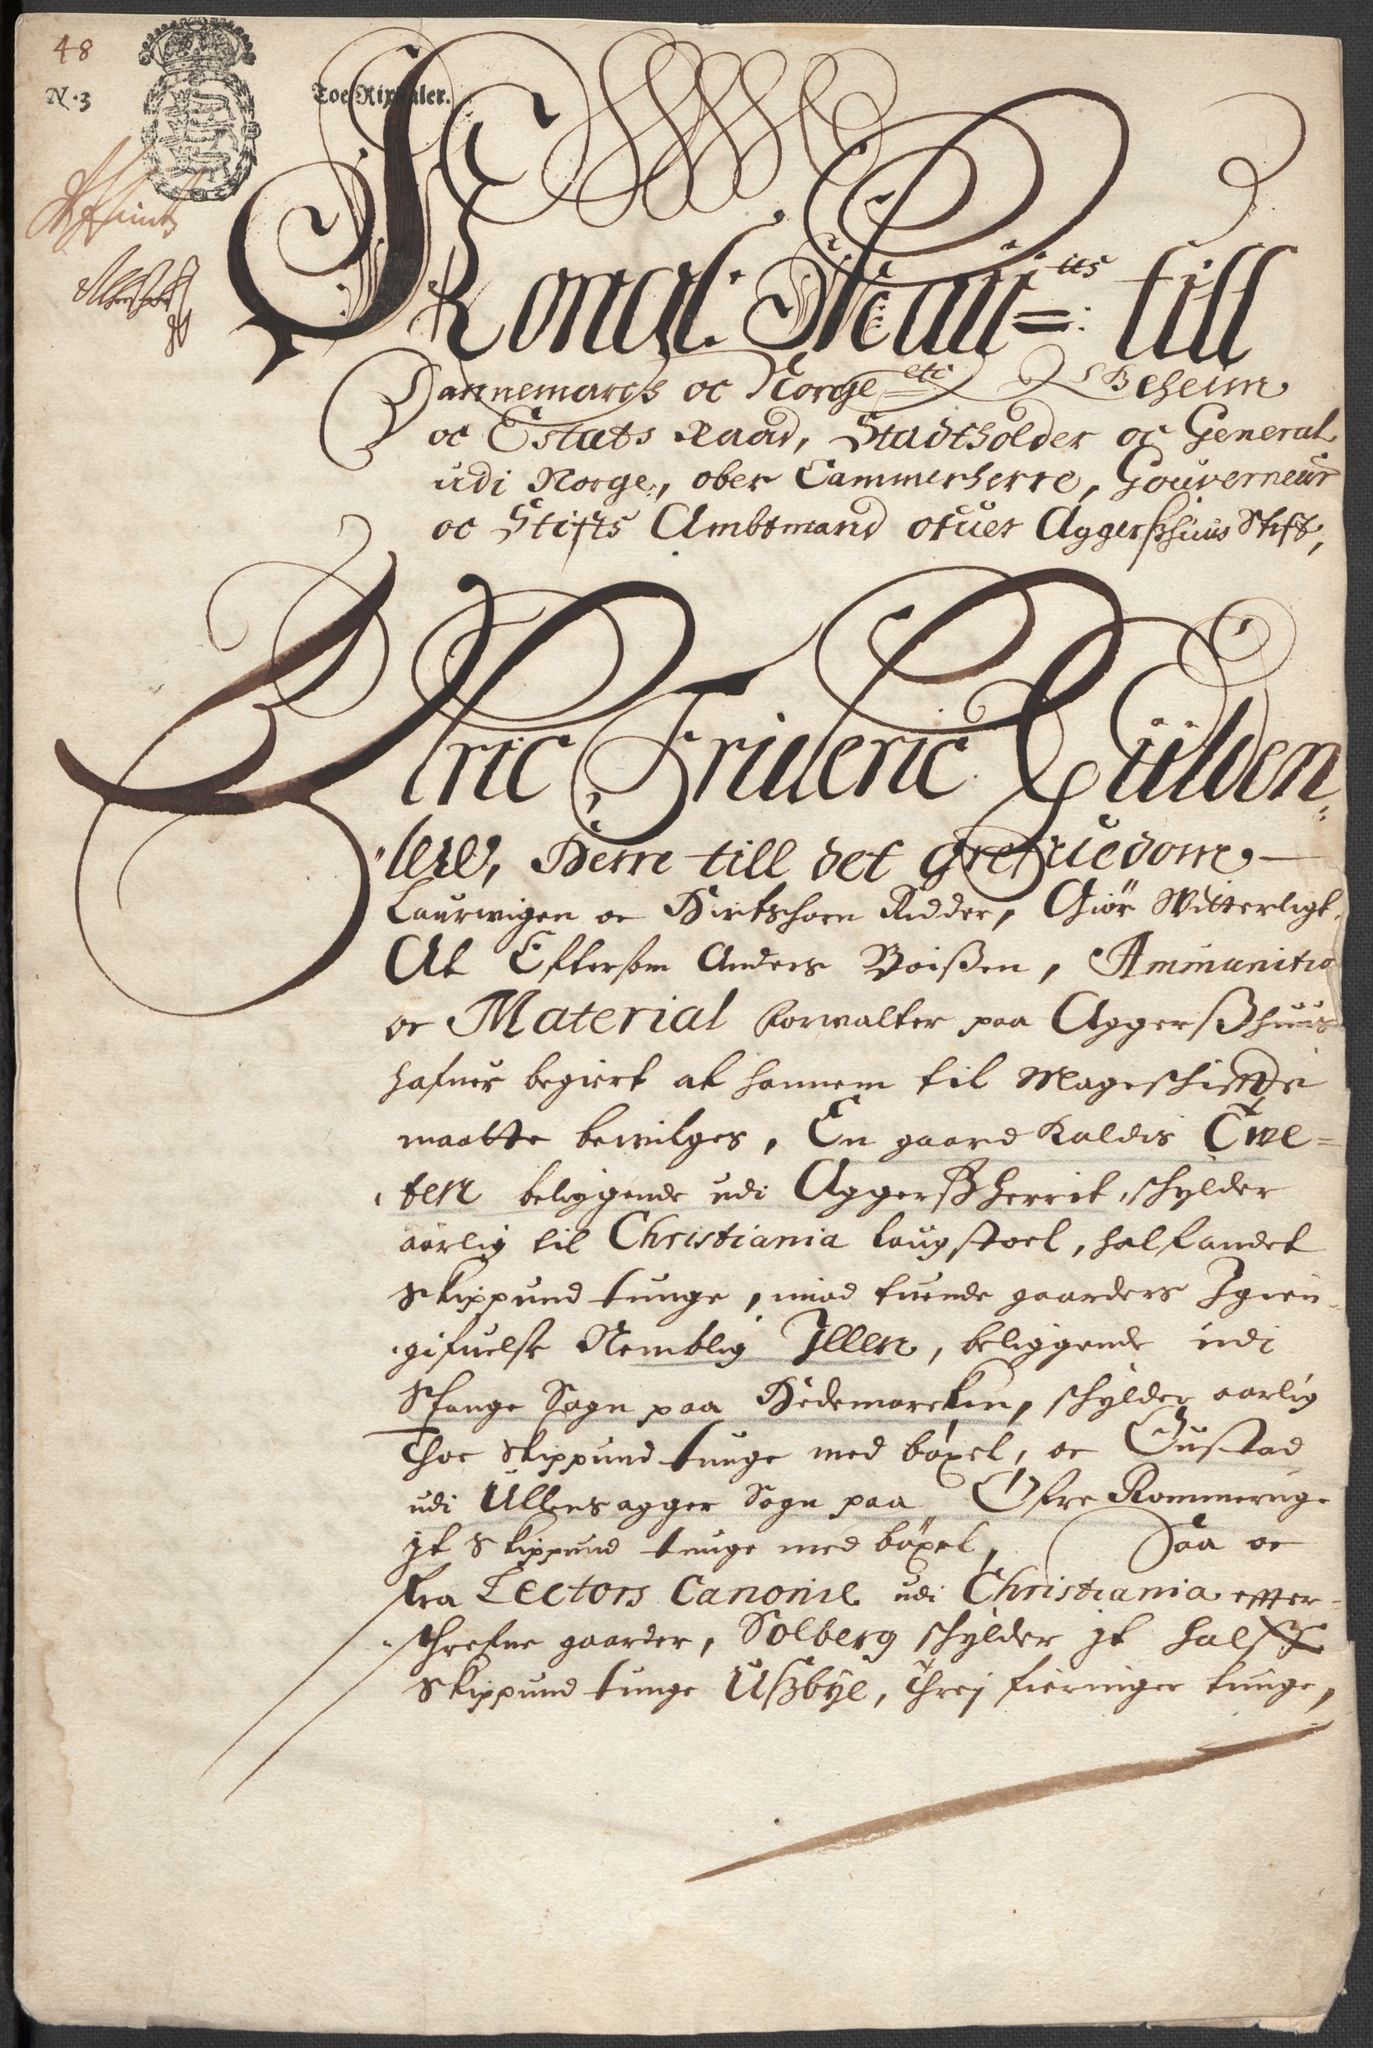 48
N. 3
Toe Rixdaler.
Kongl. Maij.tts till
Dannemarck oc Norge etc Geheim
oc Estats Raad, Stadtholder oc General
udi Norge, ober Cammerherre, Gouverneur
oc Stifts Ambtmand ofuer Aggerßhuus Stift,
Ulric Frideric Gülden-
lew, Herre till det grefuedom
Laurwigen oc Hirtshoen Ridder, Giör Witterligt,
At Eftersom Anders Boißen, Ammunitio
oc Material forwalter paa Aggerßhuus
hafuer begiert at hannem til Mageschiffte
maatte bewilges, En gaard Kaldis Twe-
ten beliggende udi Aggerßherrit, schylder
aarlig til Christiania laugstoel, halfandet
Skippund tunge, imod tuende gaarders Igien-
gifuelse Nemblig Illen, beliggende udi
Stange Sogn paa Hedemarcken, schylder aarlig
Thoe Skippund tunge med böxel, oc Gustad
udi Ullensagger Sogn paa Øfre Rommerige
jt Skippund tunge med böxel, Saa oc
fra Lectors Canonie udi Christiania effter-
schrefne gaarder, Solberg schylder jt half
Skippund tunge Ußbye, Threj fieringer tunge,